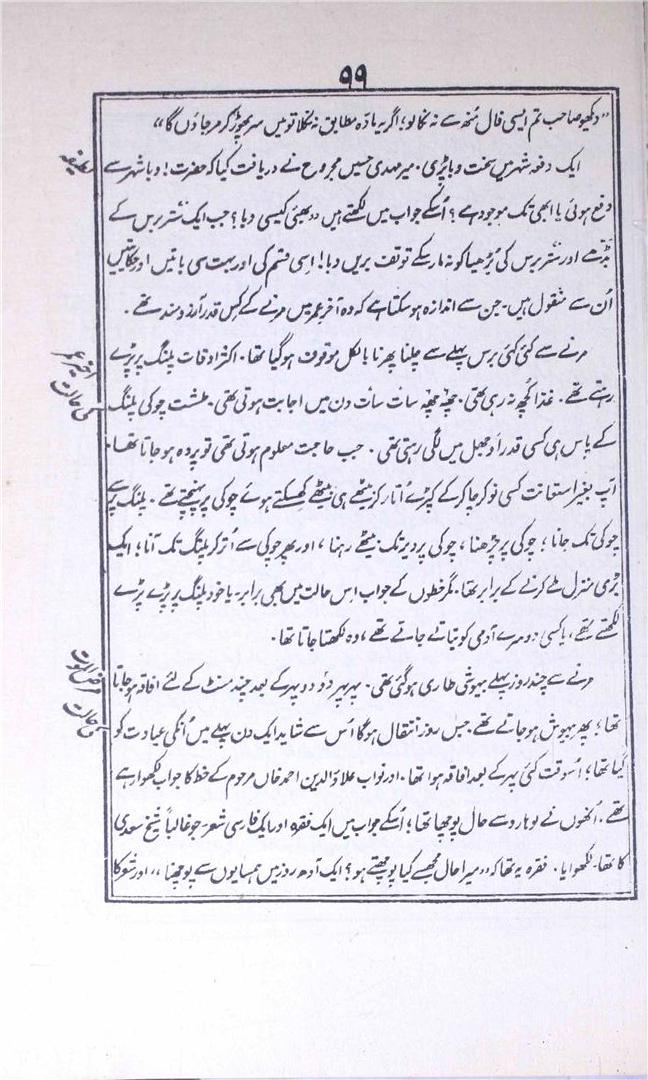 ۹۹
"دیکھو صاحب تم ایسی فال مُنھ سے نہ نکالو؛ اگر یہ مادّہ مطابق نہ نکلا تو میں سر پھوڑ کر مر جاؤں گا"
ایک دفعہ شہر میں سخت وبا پڑی۔ میر مہدی حسین مجروح نے دریافت کیا کہ حضرت! وبا شہر سے
دفع ہوئی یا ابھی تک موجود ہے؟ اُسکے جواب میں لکھتے ہیں "بھئی کیسی وبا؟ جب ایک ستّر برس کے
بڈّھے اور ستّر برس کی بُڑھیا کو نہ مار سکے تو تف بریں وبا! اسی قسم کی اور بہت سی باتیں اور حکایتیں
اُن سے منقول ہیں۔ جن سے اندازہ ہو سکتا ہے کہ وہ آخر عمر میں مرنے کے کس قدر آرزومند تھے۔
مرنے سے کئی کئی برس پہلے سے چلنا پھرنا بالکل موقوف ہو گیا تھا۔ اکثر اوقات پلنگ پر پڑے
رہتے تھے۔ غذا کچھ نہ رہی تھی۔ چھ چھ سات سات دن میں اجابت ہوتی تھی۔ طشت چوکی پلنگ
کے پاس ہی کسی قدر اوجھل میں لگی رہتی تھی۔ جب حاجت معلوم ہوتی تھی تو پردہ ہو جاتا تھا۔
آپ بغیر استعانت کسی نوکر چاکر کے کپڑے اُتار کر بیٹھے ہی بیٹھے کھسکتے ہوئے چوکی پر پہنچتے تھے۔ پلنگ پر سے
چوکی تک جانا؛ چوکی پر چڑھنا، چوکی پر دیر تک بیٹھے رہنا، اور پھر چوکی سے اُتر کر پلنگ تک آنا؛ ایک
بڑی منزل طے کرنے کے برابر تھا۔ مگر خطوں کے جواب اس حالت میں بھی برابر۔ یا خود پلنگ پر پڑے پڑے
لکھتے تھے، یا کسی دوسرے آدمی کو بتاتے جاتے تھے، وہ لکھتا جاتا تھا۔
مرنے سے چند روز پہلے بیہوشی طاری ہو گئی تھی۔ پہر پہر دو دو پہر کے بعد چند منٹ کے لئے افاقہ ہو جاتا
تھا؛ پھر بیہوش ہو جاتے تھے۔ جس روز انتقال ہوگا اُس سے شاید ایک دن پہلے میں اُنکی عیادت کو
گیا تھا؛ اُسوقت کئی پہر کے بعد افاقہ ہوا تھا۔ اور نواب علاؤالدین احمد خاں مرحوم کے خط کا جواب لکھوا رہے
تھے۔ اُنھوں نے لوہارو سے حال پوچھا تھا؛ اُسکے جواب میں ایک فقرہ اور ایک فارسی شعر۔ جو غالباً شیخ سعدی
کا تھا۔ لکھوایا۔ فقرہ یہ تھا کہ "میرا حال مجھسے کیا پوچھتے ہو؟ ایک آدھ روز میں ہمسایوں سے پوچھنا" اور شعر کا